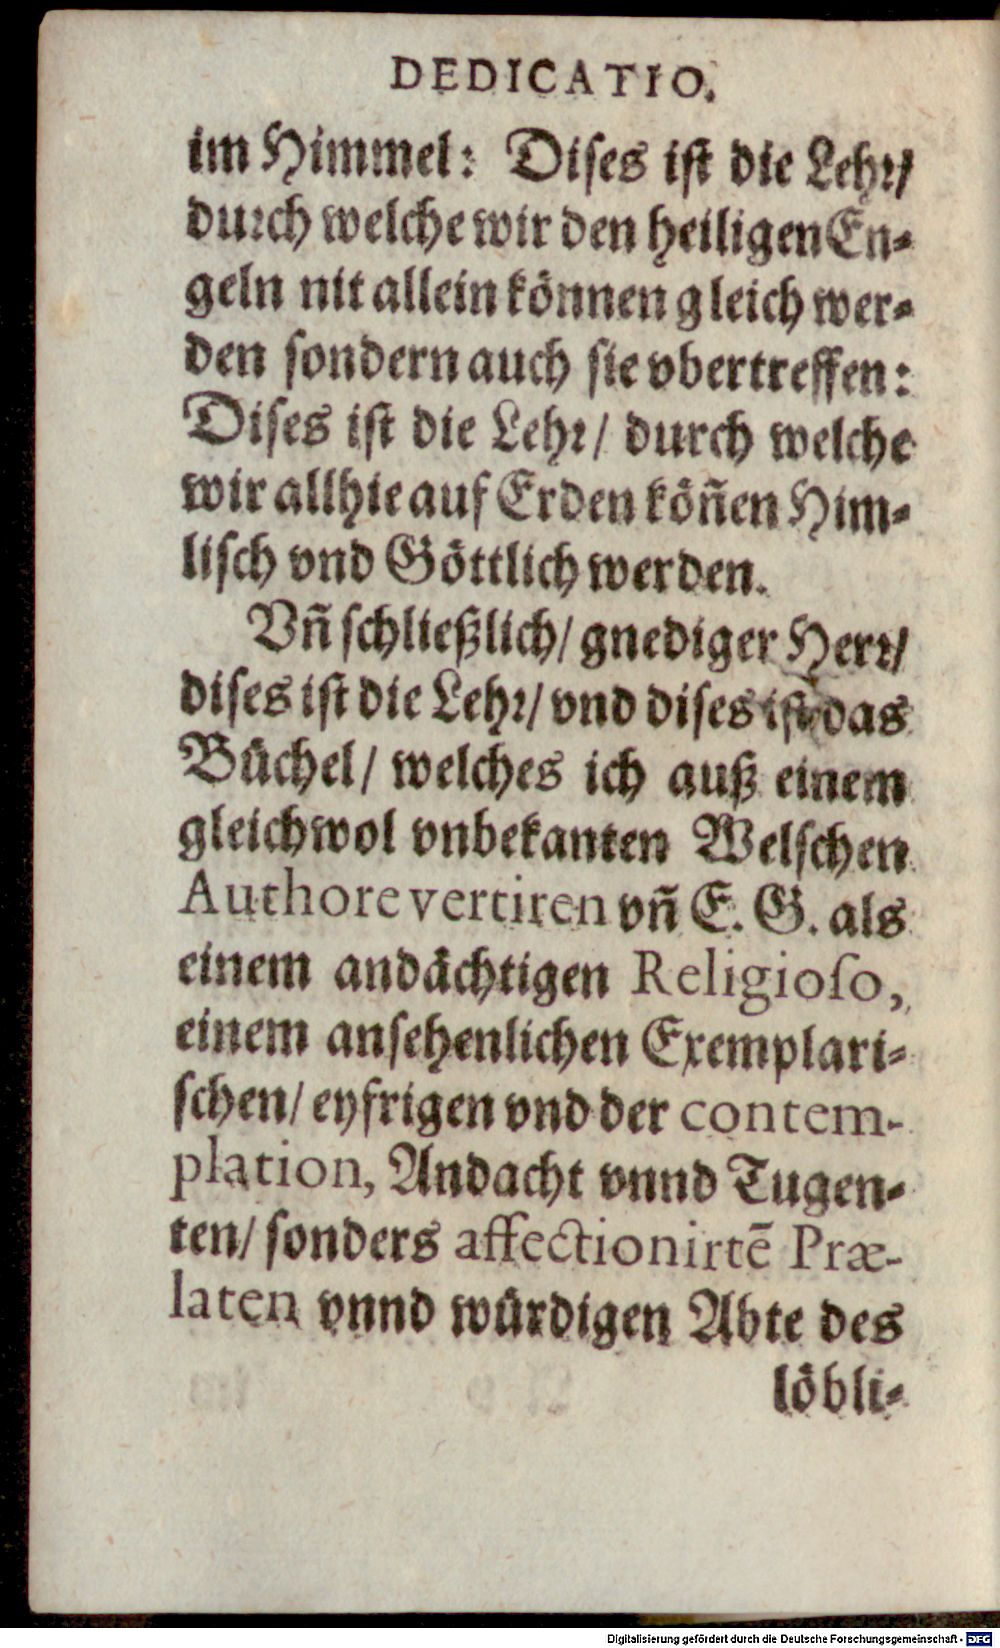 DEDICATIO.
im Himmel: Dises ist die Lehr/
durch welche wir den heiligen En-
geln nit allein können gleich wer-
den sondern auch sie vbertreffen:
Dises ist die Lehr/ durch welche
wir allhie auf Erdenköñen Him-
lisch vnd Göttlich werden.
Vñ schließlich/ gnediger Herr/
dises ist die Lehr/ vnd dises ist das
Büchel/ welches ich auß einem
gleichwol vnbekanten Welschen
Authore vertiren vñ E. G. als
einem andächtigen Religioso,
einem ansehenlichen Exemplari-
schen/ eyfrigen vnd der contem-
plation, Andacht vnnd Tugen-
ten/ sonders affectionirtē Præ-
laten vnnd würdigen Abte des
löbli-
Digitalisierung gefördert durch die Deutsche Forschungsgemeinschaft - DFG